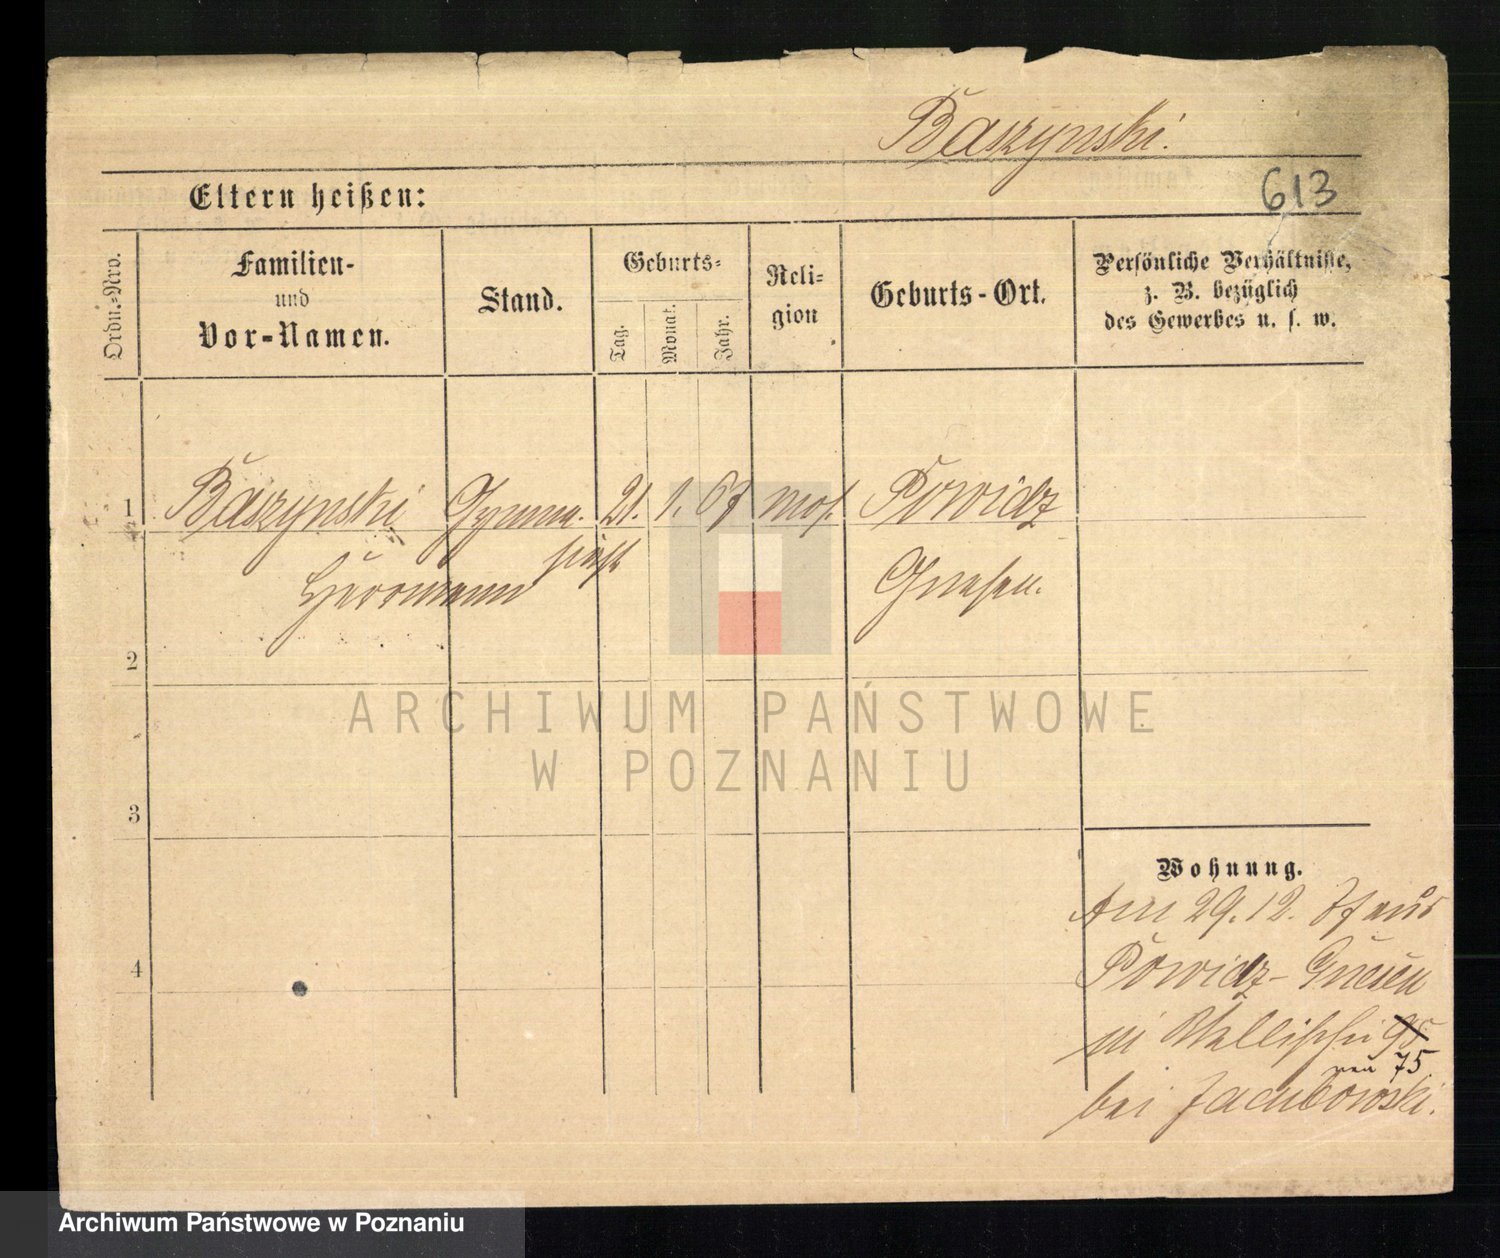 Baszynski.
613
Eltern heißen:
Ordn.-Nro.
Familien-
und
Vor-Namen.
Stand.
Geburts-
Tag.
Monat.
Jahr.
Reli-
gion
Geburts-Ort.
Persönliche Verhältnisse,
z. B. bezüglich
des Gewerbes u. s. w.
1 Baszynski Gymna. 21. 1. 67 mos. Powidz
Herrmann siast Gnesen.
2
3
4
Wohnung.
Am 29.12. aus
Powidz-
in Wallischei 95
neu 75
bei Jacubowski.
ARCHIWUM PAŃSTWOWE
W POZNANIU
Archiwum Państwowe w Poznaniu